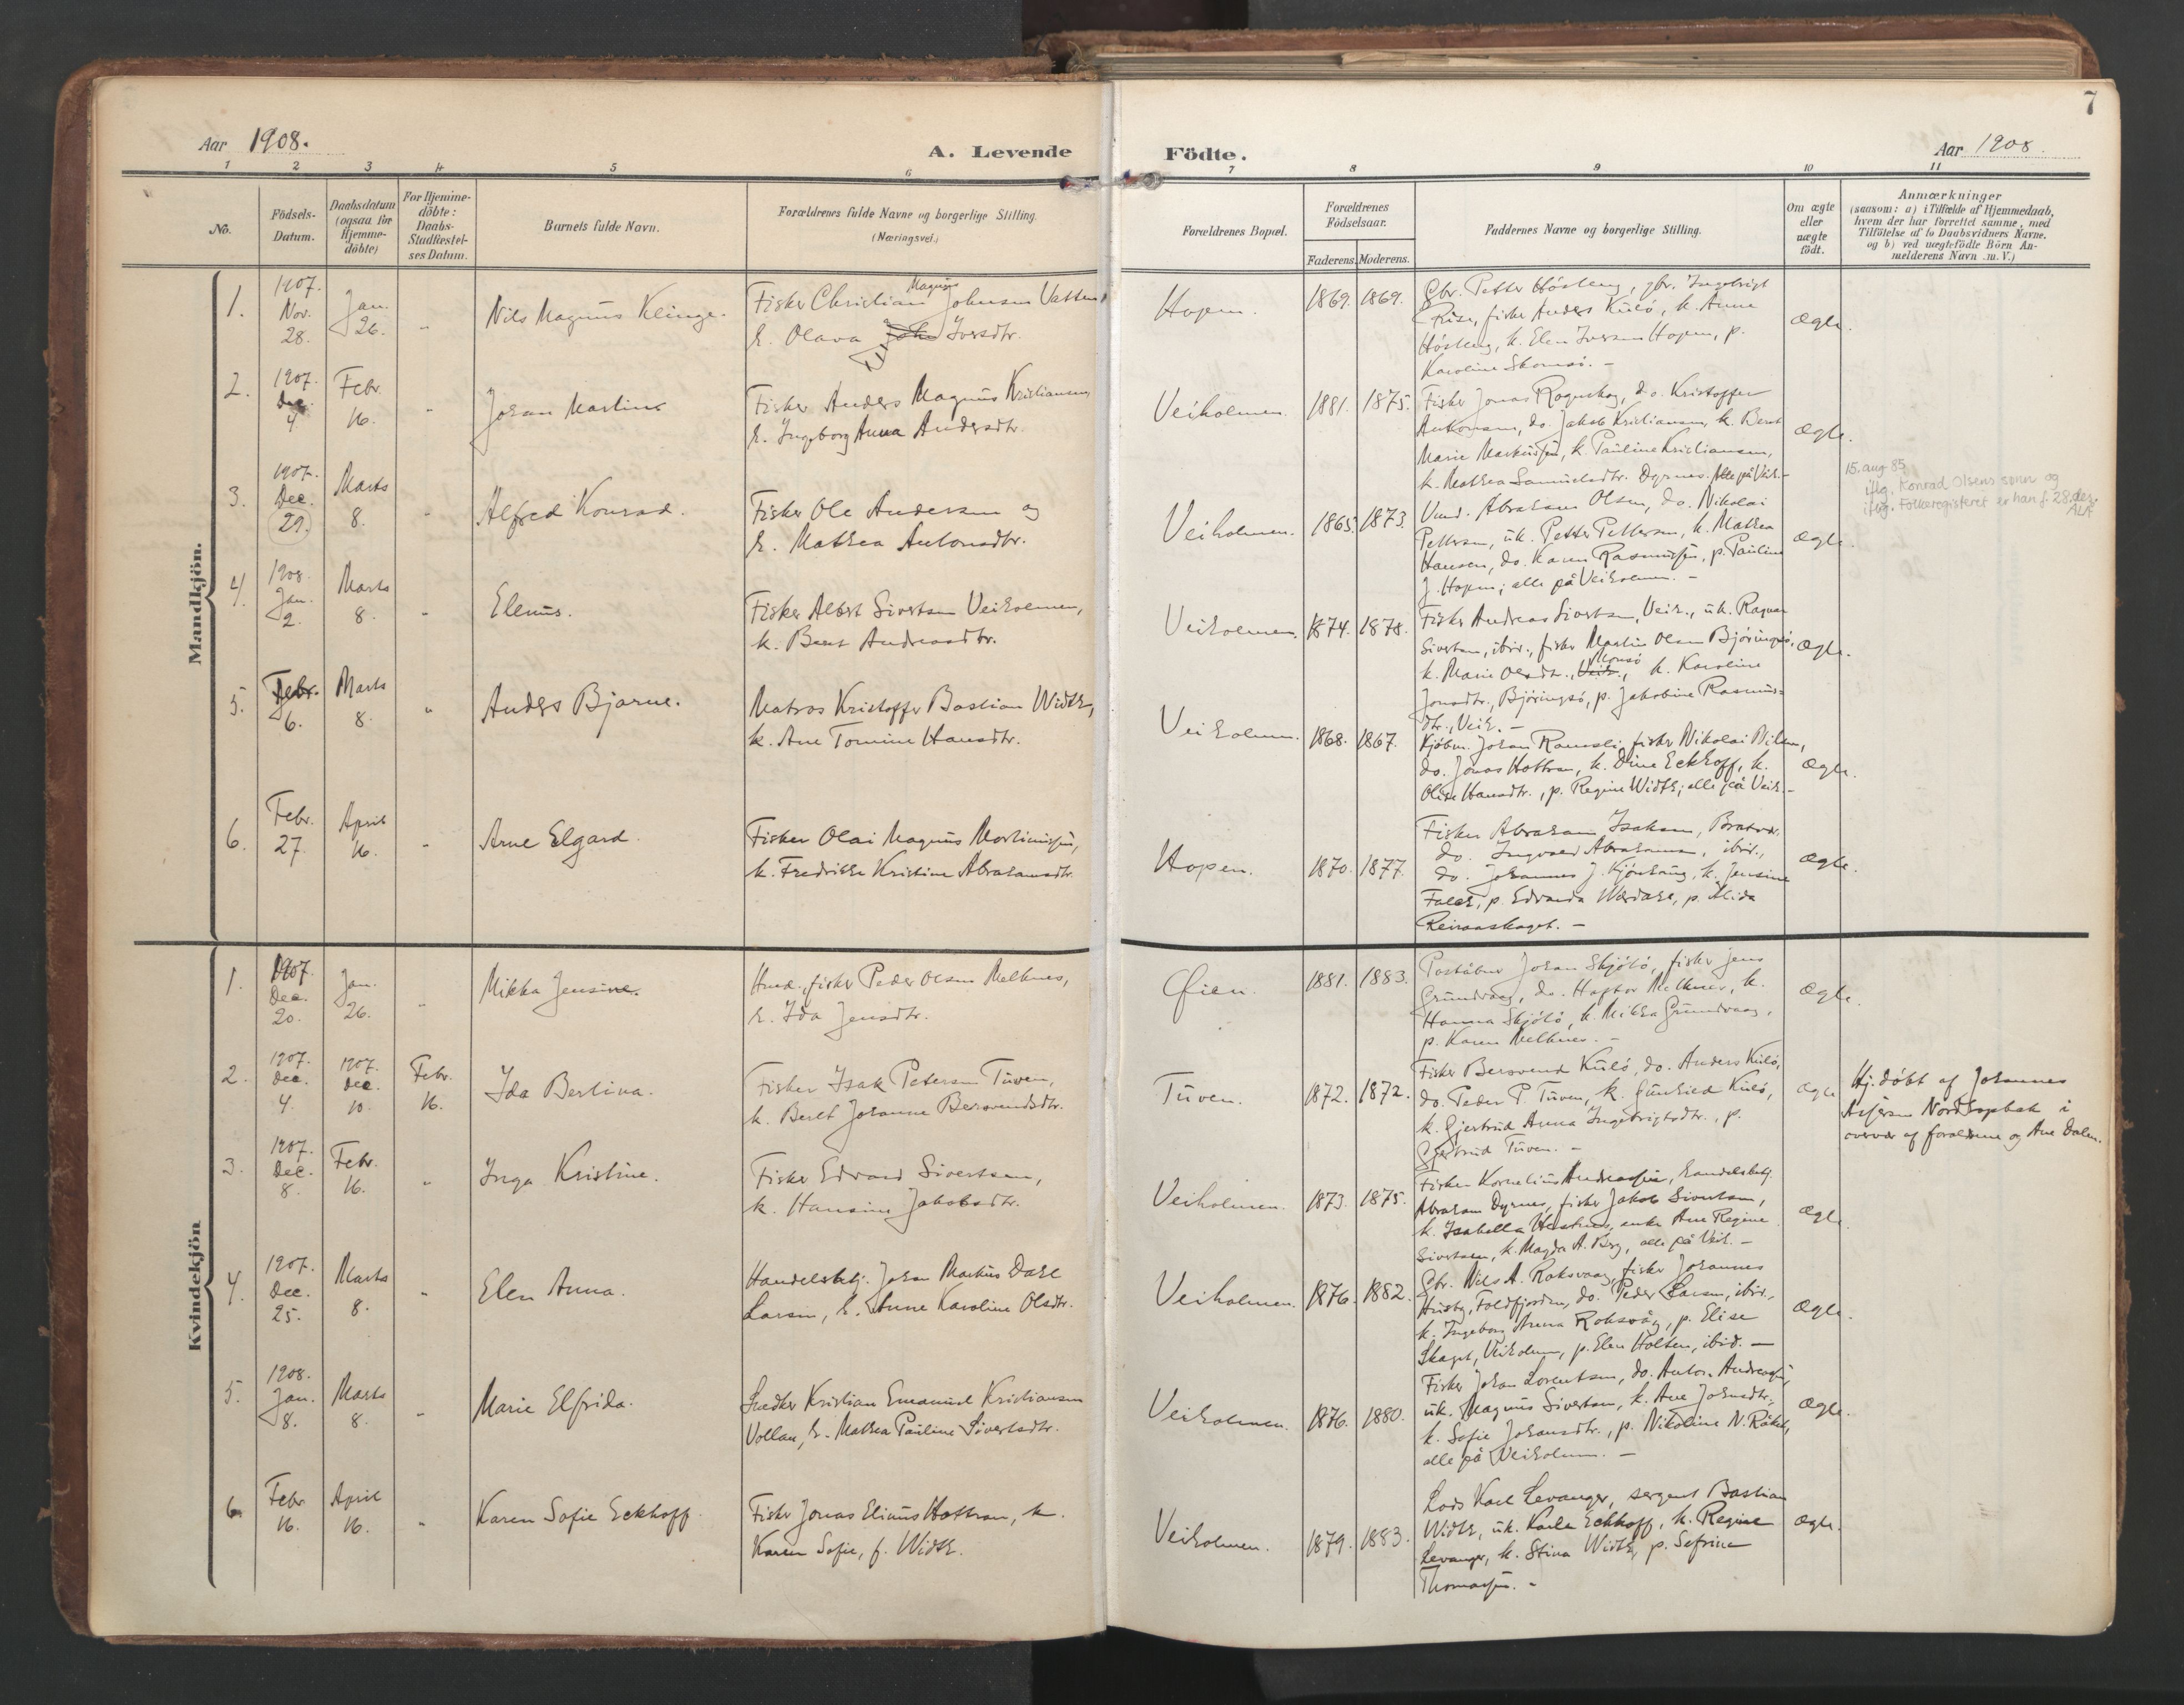 7
Aar 1908.
A. Levende
Födte.
Aar 1908.
1 2 3 4 5 6 7 8 9 10 11
No.
Födsels-
Datum.
Daabsdatum
(ogsaa for
Hjemme-
döbte)
For Hjemme-
döbte:
Daabs-
Stadfæstel-
ses Datum.
Barnets fulde Navn.
Forældrenes fulde Navne og borgerlige Stilling.
(Næringsvei.)
Forældrenes Bopæl.
Forældrenes
Födselsaar.
Faderens. Moderens.
Faddernes Navne og borgerlige Stilling.
Om ægte
eller
uægte
födt.
Anmærkninger
(saasom: a) i Tilfælde af Hjemmedaab,
hvem der har forrettet samme, med
Tilföielse af to Daabsvidners Navne,
og b) ved uægtefödte Börn An-
melderens Navn m. V.)
Mandkjön.
1.
1907.
Nov.
28.
Jan.
26.
"
Nils Magnus Klinge.
Fisker Christian Magnus Johnsen Vatten
k. Olava Iversdtr.
Hopen.
1869. 1869.
Gbr. Petter Hösteng, gbr. Ingebrigt
Risø, fisker Anders Kulö, k. Anne
Hösteng, k. Elen Iversen Hopen, p.
Karoline Skomsö. -
Ægte.
2.
1907.
Dec.
4
Febr.
16.
"
Johan Martins
Fisker Anders Magnus Kristiansen,
k. Ingeborg Anna Andersdtr.
Veiholmen.
1881. 1875.
Fisker Jonas Rognskog, do. Kristoffer
Antonsen, do. Jakob Kristiansen, k. Berit
Marie Markussen, k. Pauline Kristiansen,
k. Mathea Samuelsdtr. Dyrnes. Alle på Veih.-
Ægte.
3.
1907.
Dec.
29.
Marts
8.
"
Alfred Konrad.
Fisker Ole Andersen og
k. Mathea Antonsdtr.
Veiholmen.
1865. 1873.
Und. Abraham Olsen, do. Nikolai
Pettersen, uk. Petter Pettersen, k. Mathea
Hansen, do. Karen Rasmussen, p. Pauline
J. Hopen; alle på Veiholmen. -
Ægte.
15. aug 85
iflg. Konrad Olsens sønn og
iflg. Folkeregisteret er han f. 28. des.
ALR
4.
1908.
Jan.
2.
Marts
8.
"
Elenus.
Fisker Albert Sivertsen Veiholmen,
k. Berit Andreasdtr.
Veiholmen.
1874. 1878.
Fisker Andreas Sivertsen, Veih., uk. Ragnar
Sivertsen, ibid., fisker Martin Olsen Björingsö,
k. Marie Olsdtr., Monsö, k. Karoline
Jonsdtr., Björingsö, p. Jakobine Rasmus-
dtr., Veih. -
Ægte.
5.
Febr.
6.
Marts
8.
"
Anders Bjarne.
Matros Kristoffer Bastian Width,
k. Ane Tomine Hansdtr.
Veiholmen.
1868. 1867.
Kjöbm. Johan Ramsli, fisker Nikolai Nilsen,
do. Jonas Hottran, k. Dina Eckhoff, k.
Olise Hansdtr., p. Regine Width; alle på Veih.-
Ægte.
6.
Febr.
27.
April
16.
"
Arne Elgard.
Fisker Olai Magnus Martinussen,
k. Fredrikke Kristine Abrahamsdtr.
Hopen.
1870. 1877.
Fisker Abraham Isaksen, Bratvær.
do. Ingvald Abrahamsen, ibid.,
do. Johannes J. Kjönhaug, k. Jensine
Falch, p. Edvarda Wærdahl, p. Alida
Reiraaskaget. -
Ægte.
Kvindekjön
1.
1907.
Dec.
20.
Jan.
26.
"
Mikka Jensine.
Hmd., fisker Peder Olsen Melknes,
k. Ida Jensdtr.
Öien.
1881. 1883.
Postaabner Johan Skjölö, fisker Jens
Grundvaag, do. Hagbar Melknes, k.
Hanna Skjölö, k. Mikka Grundvaag,
p. Karen Melknes. -
Ægte.
2.
1907.
Dec.
4.
1907.
Dec.
10.
Febr.
16.
Ida Bertina.
Fisker Isak Petersen Tuven,
k. Berit Johanne Bersvendsdtr.
Tuven.
1872. 1872.
Fisker Bersvend Kulö, do. Anders Kulö,
do. Peder P. Tuven, k. Gunhild Kulö,
k. Gjertrud Anna Ingebrigtsdtr., p.
Gjertrud Tuven. -
Ægte
Hj.döbt af Johannes
Asfersen Nordhopbak i
overvær af forældrene og Ane Dalen.
3.
1907.
Dec.
8.
Febr.
16.
"
Inga Kristine.
Fisker Edvard Sivertsen,
k. Hansine Jakobsdtr.
Veiholmen.
1873. 1875.
Fisker Kornelius Andreassen, handelsbetj.
Abraham Dyrnes, fisker Jakob Sivertsen,
k. Isabella Hestnes, enke Ane Regine
Sivertsen, k. Magda A. Berg, alle på Veih. -
Ægte.
4.
1907.
Dec.
25.
Marts
8.
"
Elen Anna.
Handelsbetj. Johan Markus Dahl
Larsen, k. Anne Karoline Olsdtr.
Veiholmen.
1876. 1882.
Gbr. Nils A. Roksvaag, fisker Johannes
Husby, Foldfjorden, do. Peder Larsen, ibid.,
k. Ingeborg Anna Roksvåg, p. Elise
Skaget, Veiholmen, p. Elen Holten, ibid. -
Ægte.
5.
1908.
Jan.
8.
Marts
8.
"
Marie Elfrida.
Snedker Kristian Emanuel Kristiansen
Vollan, k. Mathea Pauline Sivertsdtr.
Veiholmen.
1876. 1880.
Fisker Johan Lorentsen, do. Anton Andreassen,
uk. Magnus Sivertsen, k. Ane Johnsdtr.,
k. Sofie Johansdtr., p. Nikoline N. Råket,
alle på Veiholmen. -
Ægte.
6.
Febr.
16.
April
16.
"
Karen Sofie Eckhoff.
Fisker Jonas Elinus Hottran, k.
Karen Sofie, f. Width.
Veiholmen.
1879. 1883.
Lods Karl Levanger, sergent Bastian
Width, uk. Karla Eckhoff, k. Regine
Levanger, k. Stina Width, p. Sefrine
Thomassen. -
Ægte.